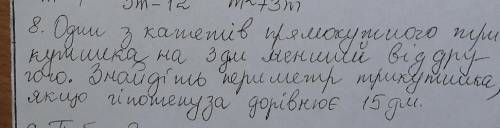 3m-12 m²+3m
8. Один з катетів прямокутного три
кутника на 3дм менший від дру
гого. Знайдіть периметр трикутника,
якщо гіпотенуза дорівнює 15дм.